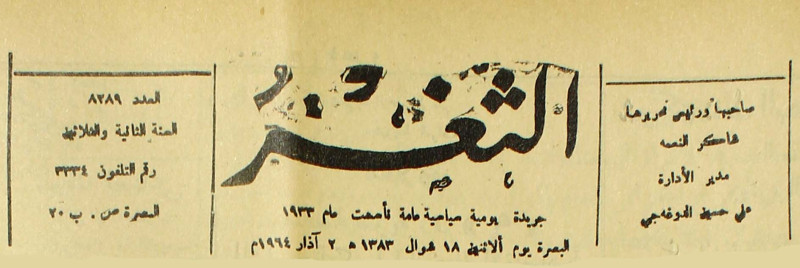 صاحبها ورئيس تحريرها
شاكر النعمه
مدير الأدارة
علي حسين الدوغه‌جي
الثغر
جريدة يومية سياسية عامة تأسست عام ١٩٣٣
البصرة يوم ألاثنين ١٨ شوال ١٣٨٣ ه ٢ آذار ١٩٦٤م
العدد ٨٢٨٩
السنة الثانية والثلاثين
رقم التلفون ٣٣٣٤
البصرة ص . ب ٢٠